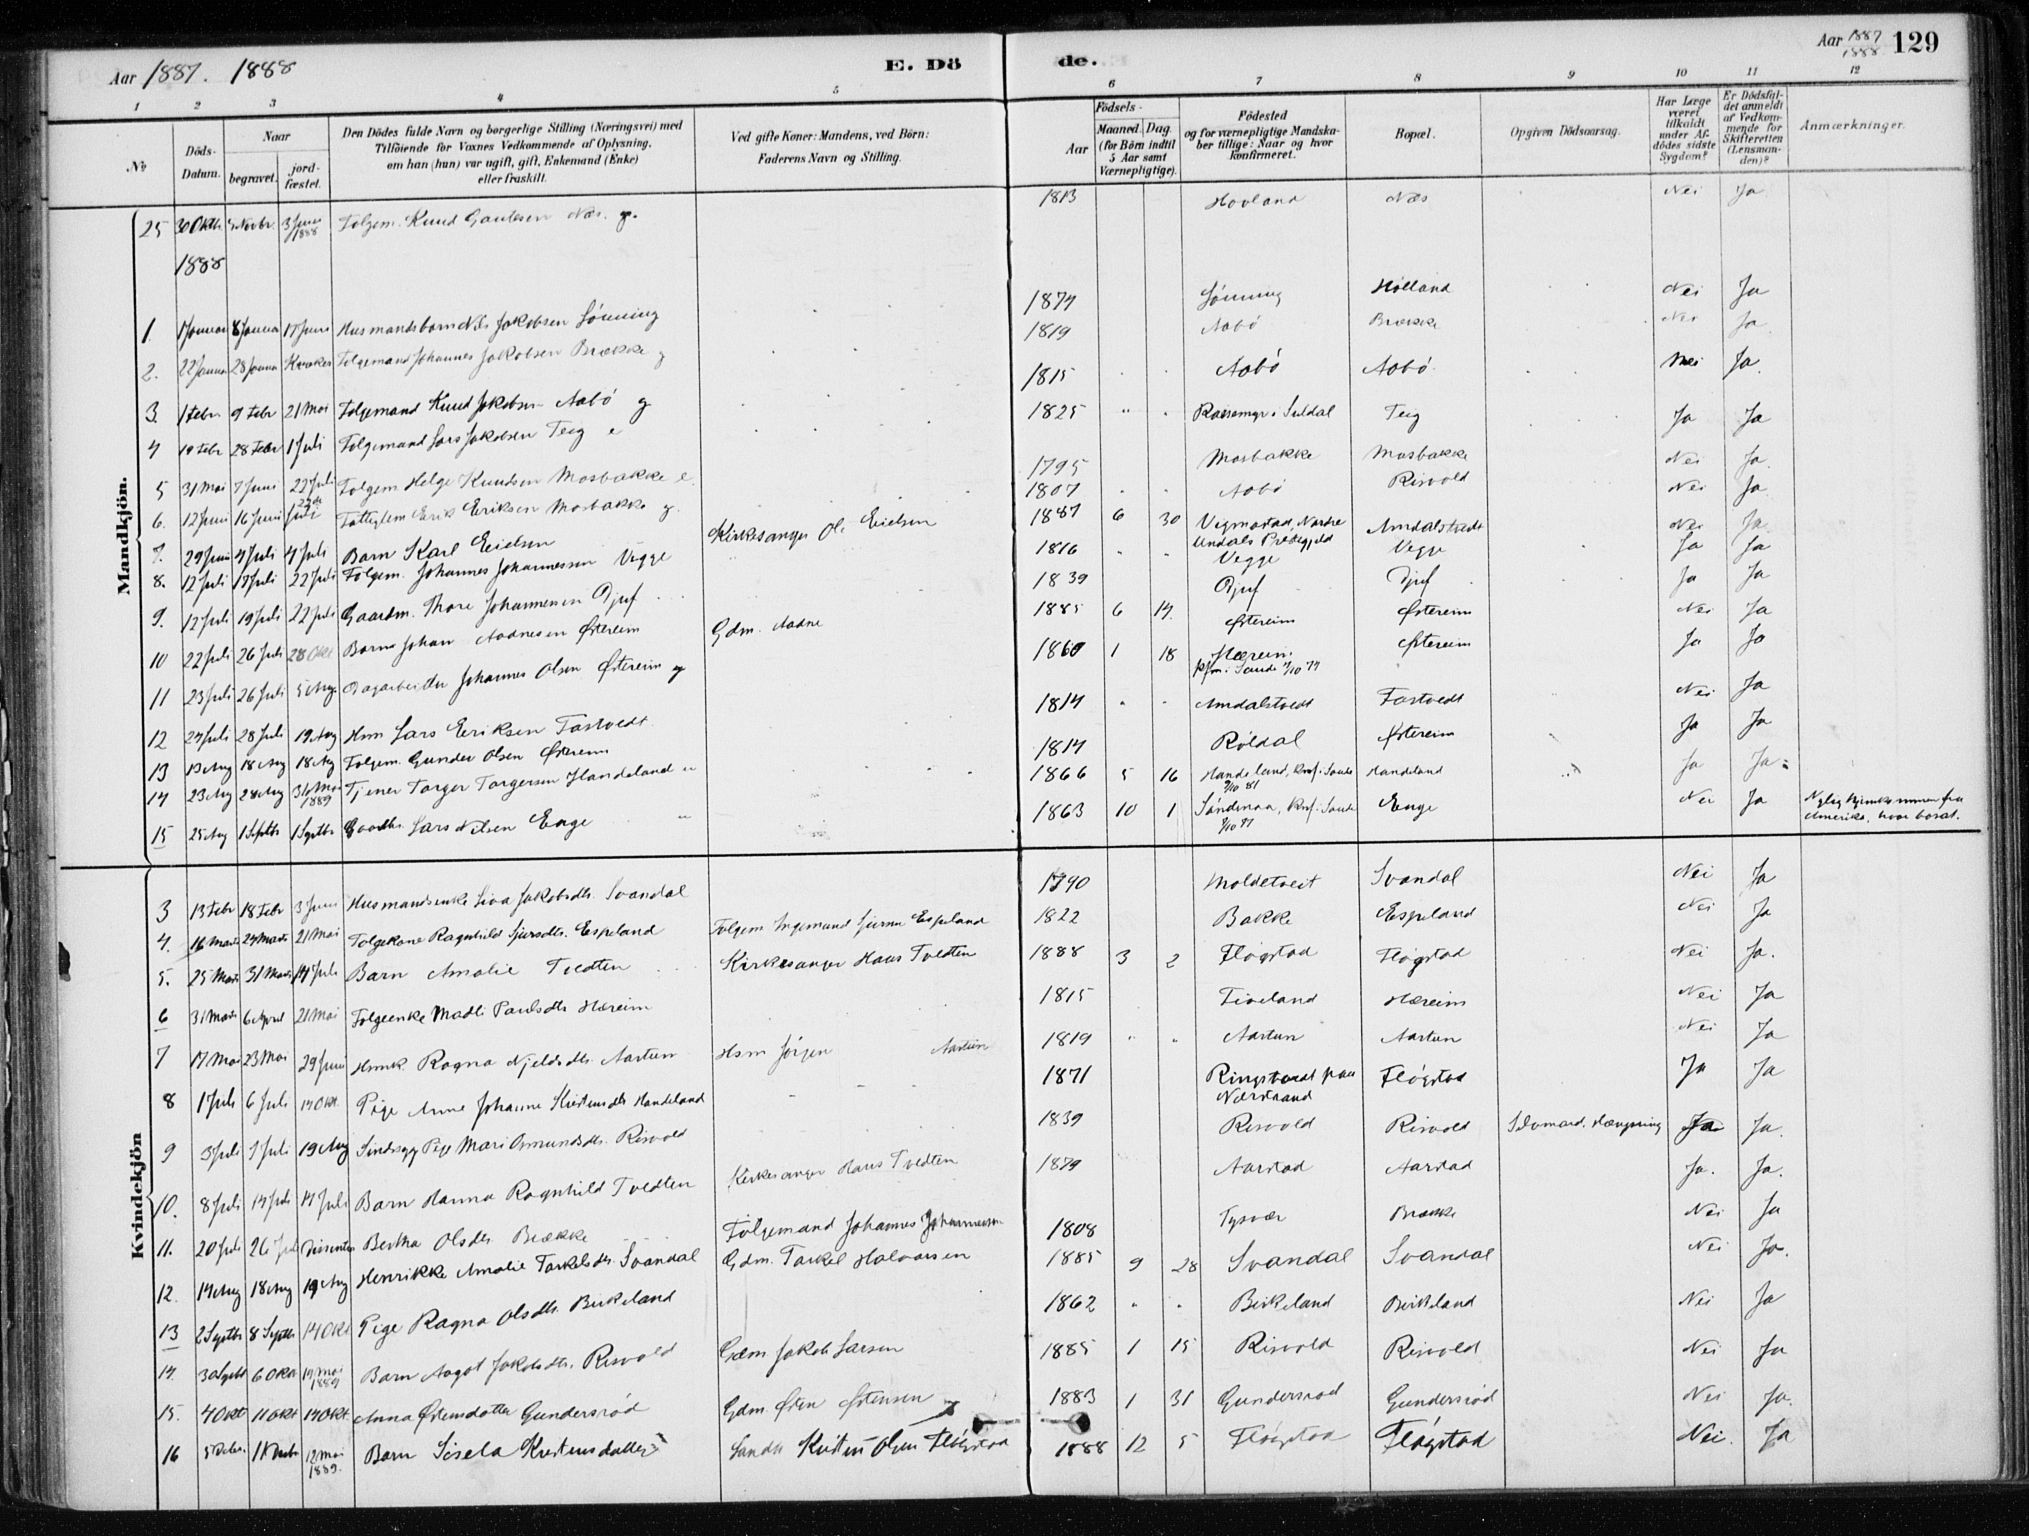 Aar 1887. 1888
E. Dö
de.
Aar 1887 1888 129
1 2 3 4 5 6 7 8 9 10 11 12
No
Döds-Datum.
Naar
begravet.
jord-fæstet.
Den Dödes fulde Navn og borgerlige Stilling (Næringsvei) med
Tilföiende for Voxnes Vedkommende af Oplysning,
om han (hun) var ugift, gift, Enkemand (Enke)
eller fraskilt.
Ved gifte Koner: Mandens, ved Börn:
Faderens Navn og Stilling.
Födsels-
Aar
Maaned. Dag.
(for Börn indtil
5 Aar samt
Værnepligtige).
Födested
og for værnepligtige Mandska-
ber tillige: Naar og hvor
konfirmeret.
Bopæl.
Opgiven Dödsaarsag.
Har Læge
været
tilkaldt
under Af-
dödes sidste
Sygdom?
Er Dödsfal-
det anmeldt
af Vedkom-
mende for
Skifteretten
(Lensman-
den)?
Anmærkninger.
Mandkjön.
25 30 Oktb. Novbr. 3 Juni 1888 Folgem. Knud Gautesen Næs. g. 1813 Hovland Næs Nei Ja
1888
1. 1 Januar 8 Januar 17 Juni Husmandsbarn Nils Jakobsen Lönning 1874 Lönning Hölland Nei Ja
2. 22 Januar 28 Januar Kvæker Folgemand Johannes Jakobsen Brække g 1819 Aabö Brække Nei Ja.
3. 1 Febr. 9 Febr 21 Mai Folgemand Knud Jakobsen Aabö g 1815 Aabö Aabö. Nei Ja.
4 19 Febr 28 Febr 1 Juli Folgemand Lars Jakobsen Teig e 1825 i Suldal Teig Ja Ja
5 31 Mai 7 Juni 22 Juli Folgem Helge Knudsen Mosbakke e. 1795 Mosbakke Mosbakke Nei Ja.
6. 12 Juni 16 Juni 22de Juli Erik Eriksen Mosbakke g. 1807 Aabö Risvold Nei Ja
7. 29 Juni 4 Juli 4 Juli Barn Karl Eielsen Kirkesanger Ol. Eielsen 1887 6 30 Vegmostad, Nordre Undals Præstegjeld Amdalstvedt Nei Ja.
8. 12 Juli 17 Juli 22 Juli Folgem. Johannes Johannessen Vegge 1816 Vegge Vegge Ja Ja
9. 12 Juli 19 Juli 22 Juli Gaardm. Thore Johannessen Djuf 1839 Djuf Djuf Ja Ja
10 22 Juli 26 Juli 28 Okt Barn Johan Aadnesen Östereim Gdm. Aadne 1885 6 14. Östereim Östereim Nei Ja
11 23 Juli 26 Juli 5 Aug. Dagarbeider Johannes Olsen Östereim g 1860 1 18 Hæreim. Östereim Ja Ja
12 24 Juli 28 Juli 19 Aug Hsm Lars Eriksen Fastvedt 1814 Amdalstvedt Fastvedt Nei Ja
13 13 Aug 18 Aug 18 Aug Folgem. Gunder Olsen Östereim 1814 Röldal Östereim Ja Ja
14 23 Aug 28 Aug 31 Mai 1889 Tjener Torger Torgersen Handeland u 1866 5 16 Handeland, Knf. i Sande /10 81 Handeland Ja Ja.
15 25 Aug 1 Septb 1 Septb Lars Nilsen Enge 1863 10 1 Söndenaa, Knf. i Sande /10 77 Enge Nei Ja Nylig hjemkommen fra Amerika, hvor bosat.
Kvindekjön
3 13 Febr 18 Febr 3 Juni Husmandsenke Siva Jakobsdtr. Svandal 1790 Moldetveit Svandal Nei Ja
4. 16 Marts 24 Marts 21 Mai Folgekone Ragnhild Sjursdtr. Espeland Folgem Ingemund Espeland 1822 Bakke Espeland Nei Ja
5. 25 Marts 31 Marts 14 Juli Barn Amalie Tvedten Kirkesanger Hans Tvedten 1888 3 2 Flögstad Flögstad Nei Ja.
6 31 Marts 6 April 21 Mai Folgeenke Madli Paulsdtr Hæreim 1815 Hæreim Nei Ja
7 17 Mai 23 Mai 29 Juni Ragna Njeldsdtr. Aartun Hsm Jörgen Aartun 1819 Aartun Aartun Nei Ja
8 1 Juli 6 Juli 14 Okt. Pige Anne Johanne Handeland 1871 paa Nærstrand Flögstad Ja Ja
9 3 Juli 7 Juli 19 Aug Sindssyg Pige Mari Osmundsdtr. Risvold 1839 Risvold Risvold Selvmord. Hængning Ja Ja.
10. 8 Juli 14 Juli 14 Juli Barn Hanna Ragnhild Tvedten Kirkesanger Hans Tvedten 1879 Aarstad Aarstad Ja. Ja.
11. 20 Juli 26 Juli Dissenter Bertha Olsdtr Brække Folgemand Johannes Johannessen 1808 Tysvær Brække Nei Ja
12. 14 Aug 18 Aug 19 Aug Henrikke Amalie Torkelsdtr. Svandal Gdm. Torkel Halvorsen 1885 9 28 Svandal Svandal Nei Ja.
13 2 Septb 8 Septb 14 Okt Pige Ragna Olsdtr. Birkeland 1862 Birkeland Birkeland Nei Ja
14. 30 Septb 6 Okt 14 Mai 1889 Barn Aagot Jakobsdtr. Risvold Gdm Jakob Larsen 1885 1 15 Risvold Risvold Nei Ja
15. 4 Okt 11 Okt 14 Okt. Anna Östensdatter Gundersröd Gdm. Östen Östensen 1883 1 31 Gundersröd Gundersröd Nei Ja.
16 5 Decbr. 11 Decbr 12 Mai 1889. Barn Sisela Kristensdatter Kristen Olsen Flögstad 1888 12 5 Flögstad Flögstad Nei. Ja